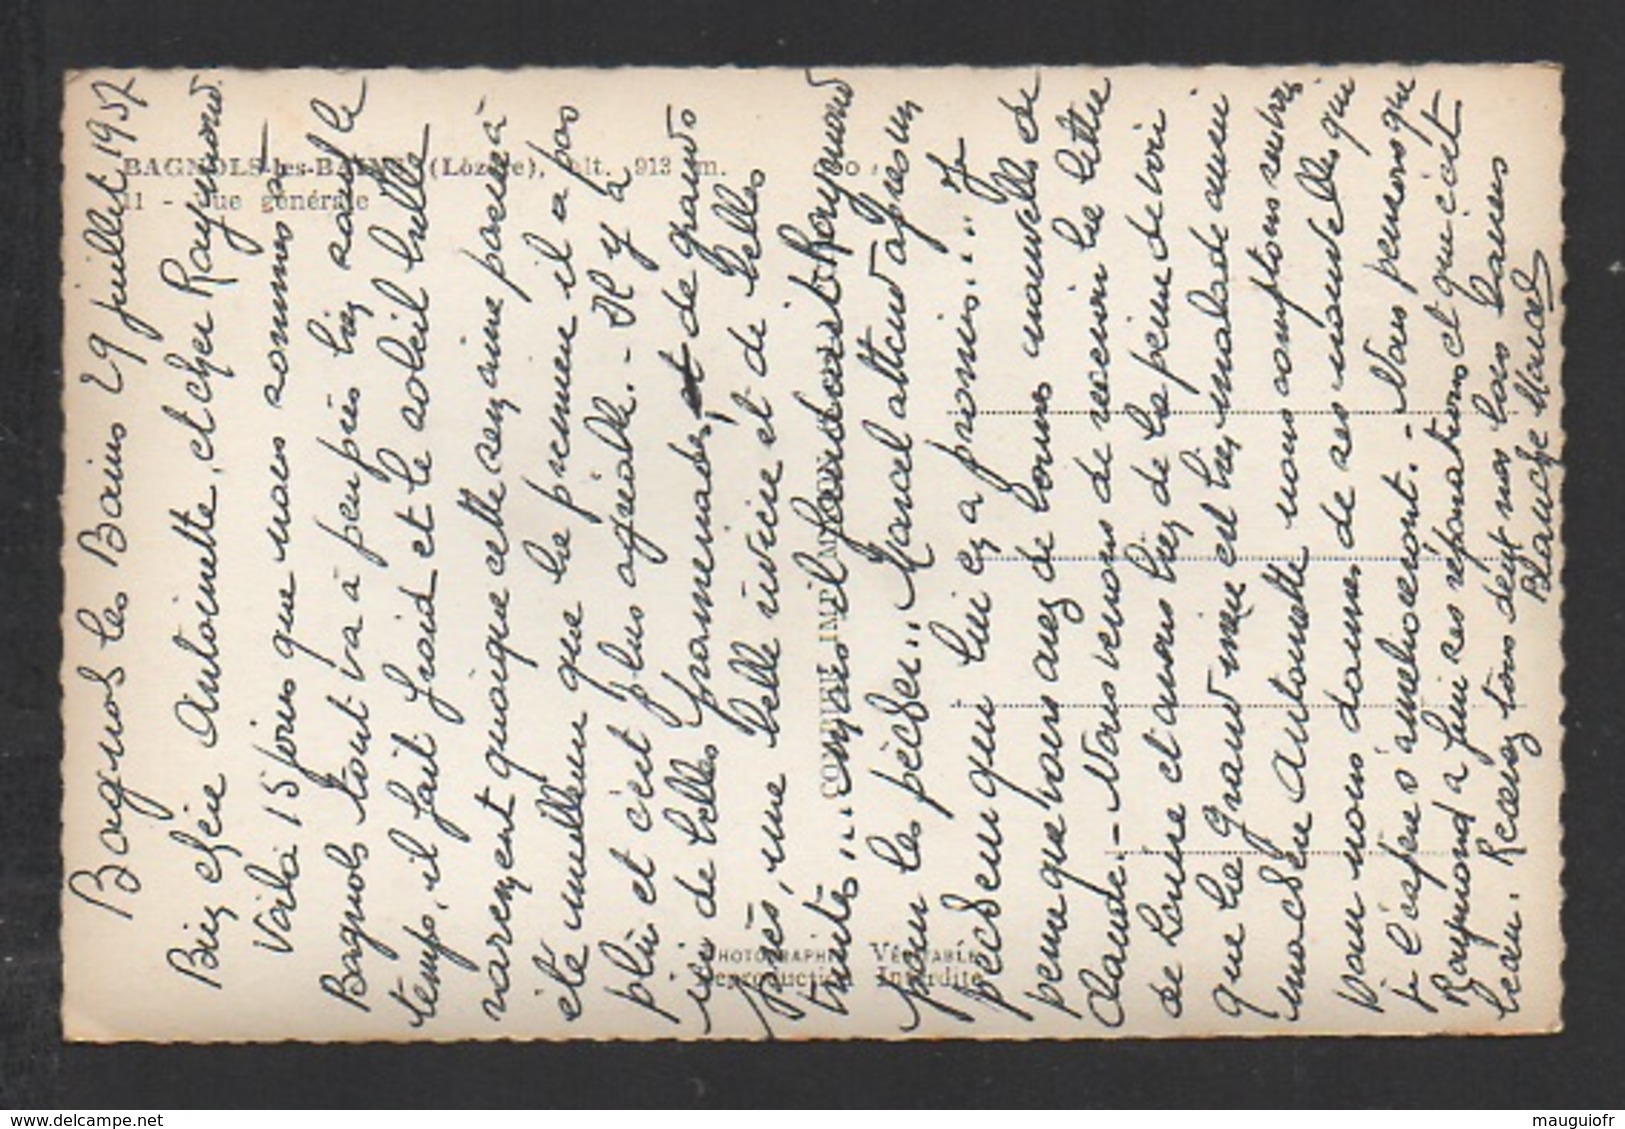 Bagnols les Bains 29 juillet 1957
Bien chère Antoinette, et cher Raymond.
Voila 15 jours que nous sommes à
Bagnols tout va à peu près bien sauf le
temps, il fait froid et le soleil brille
rarement quoique cette semaine passée a
été meilleur que la premiere il a pas
plu et c'est plus agréable. - Il y a
ici de belles promenades, de grands
prés, une belle rivière et de belles
truites... mais il faudrait Raymond
pour les pêcher.. Marcel attend après un
pecheur qui lui en a promis.... Je
pense que vous avez de bonnes nouvelles de
Claude. - Nous venons de recevoir la lettre
de Louise et avons bien de la peine de voir
que la Grand mère est très malade aussi
ma chère Antoinette nous comptons sur
vous pour nous donner de ses nouvelles qui
je l'espère s'amelioreront. - Nous pensons que
Raymond a fini ses réparations et que c'est
beau. Recevez tous deux nos bons baisers
Blanche Marcel
BAGNOLS-les-BAINS (Lozère), alt. 913 m.
11 - Vue générale
COMBIER IMP. MACON
PHOTOGRAPHIE VÉRITABLE
Reproduction Interdite
mauguiofr